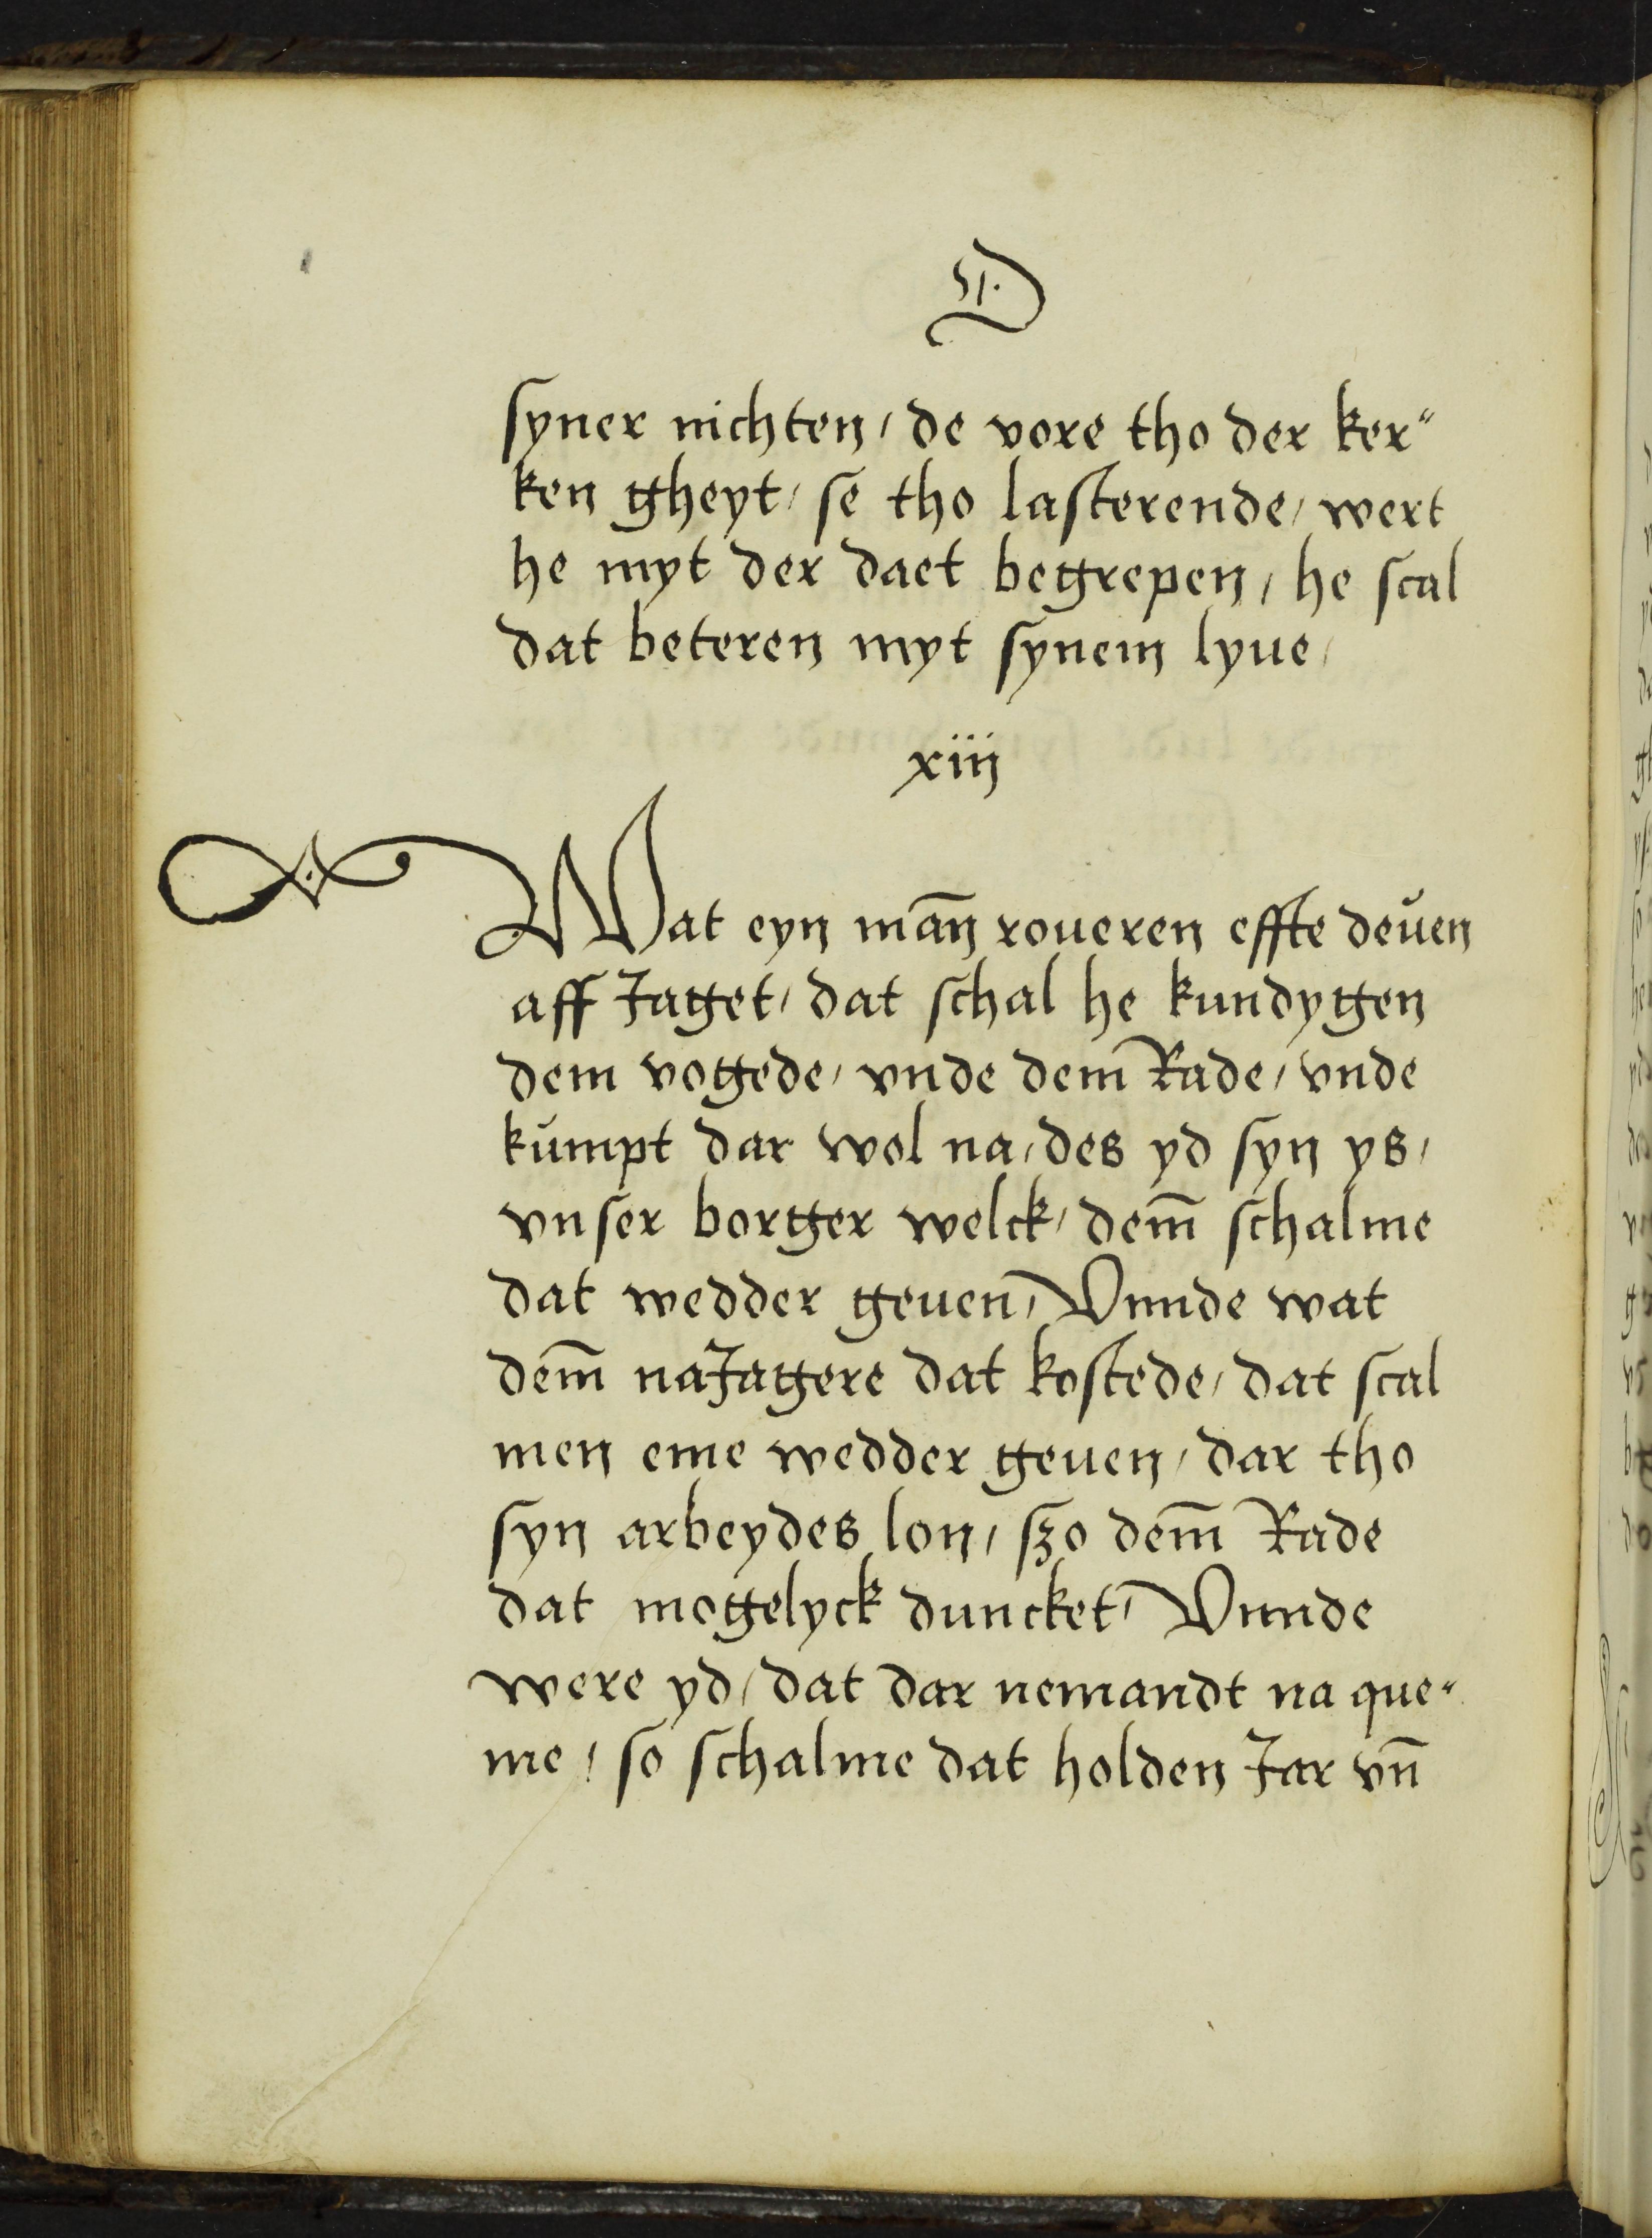 D
syner nichten / de vore tho der ker"
ken gheyt / se tho lasterende / wert
he myt der daet begrepen / he scal
dat beteren myt synem lyue /
xiij
Wat eyn mañ roueren effte deuen
aff Jaget / dat schal he kundygen
dem vogede / vnde dem Rade / vnde
kumpt dar wol na / des yd syn ys /
vnser borger welck / dem̄ schalme
dat wedder geuen / Vnnde wat
dem̄ naJagere dat kostede / dat scal
men eme wedder geuen / dar tho
syn arbeydes lon / szo dem̄ Rade
dat mogelyck duncket / Vnnde
were yd / dat dar nemandt na que"
me / so schalme dat holden Jar vn̄